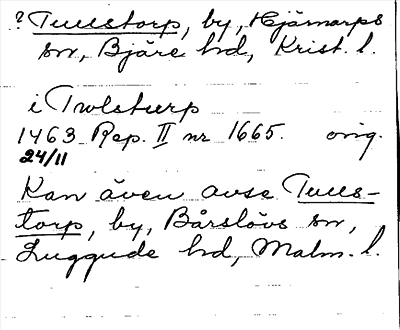 ? Tullstorp, by, Hjärnarps
sn, Bjäre hd, Krist. l.
i Twlstterp
1463 Rep. II nr 1665. orig.
24/11
Kan även avse Tulls-
torp, by, Bårslövs sn,
Luggude hd, Malm. l.